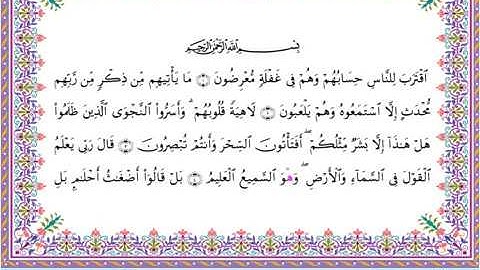 بِسْمِ اللَّهِ الرَّحْمَٰنِ الرَّحِيمِ
ٱقْتَرَبَ لِلنَّاسِ حِسَابُهُمْ وَهُمْ فِي غَفْلَةٍ مُّعْرِضُونَ ۝ مَا يَأْتِيهِم مِّن ذِكْرٍ مِّن رَّبِّهِم
مُّحْدَثٍ إِلَّا ٱسْتَمَعُوهُ وَهُمْ يَلْعَبُونَ ۝ لَاهِيَةً قُلُوبُهُمْ ۗ وَأَسَرُّوا۟ ٱلنَّجْوَى ٱلَّذِينَ ظَلَمُوا۟
هَلْ هَـٰذَآ إِلَّا بَشَرٌ مِّثْلُكُمْ ۖ أَفَتَأْتُونَ ٱلسِّحْرَ وَأَنتُمْ تُبْصِرُونَ ۝ قَالَ رَبِّي يَعْلَمُ
ٱلْقَوْلَ فِي ٱلسَّمَآءِ وَٱلْأَرْضِ ۖ وَهُوَ ٱلسَّمِيعُ ٱلْعَلِيمُ ۝ بَلْ قَالُوٓا۟ أَضْغَـٰثُ أَحْلَـٰمٍۭ بَلِ